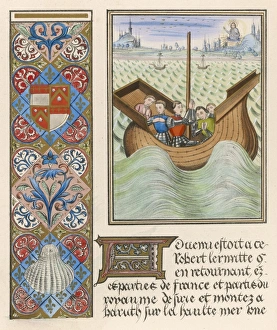 Aduenu estoit a ce
Robert lermite q
en retournant, ez
es parties de france et parties du
royaume de surie et montez a
baruth sur la haulte mer une